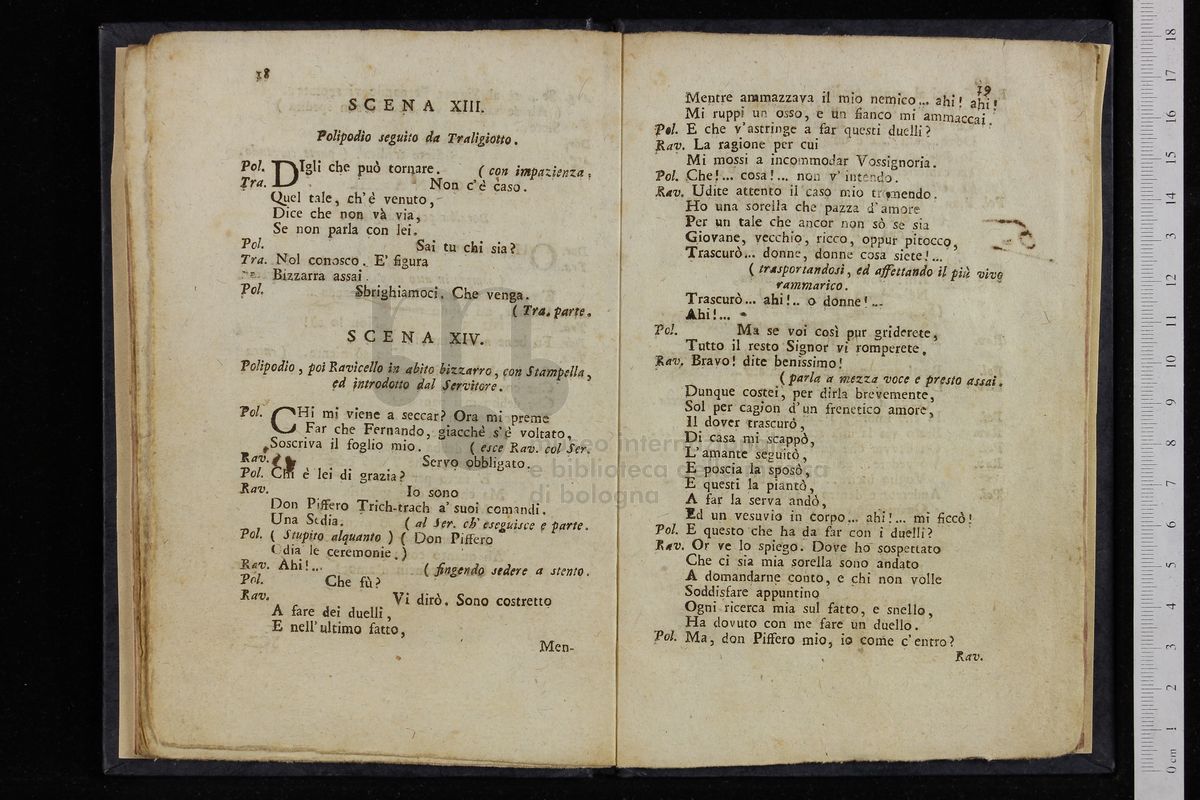 18
SCENA XIII.
Polipodio seguito da Traligiotto.
Pol. DIgli che può tornare. ( con impazienza.
Tra. Non c'è caso.
Quel tale, ch'è venuto,
Dice che non và via,
Se non parla con lei.
Pol. Sai tu chi sia?
Tra. Nol conosco. E' figura
Bizzarra assai.
Pol. Sbrighiamoci. Che venga.
( Tra. parte.
SCENA XIV.
Polipodio, poi Ravicello in abito bizzarro, con Stampella,
ed introdotto dal Servitore.
Pol. CHi mi viene a seccar? Ora mi preme
Far che Fernando, giacchè s'è voltato,
Soscriva il foglio mio. ( esce Rav. col Ser.
Rav. Servo obbligato.
Pol. Chi è lei di grazia?
Rav. Io sono
Don Piffero Trich-trach a' suoi comandi.
Una Sedia. ( al Ser. ch' eseguisce e parte.
Pol. ( Stupito alquanto ) ( Don Piffero
Odia le ceremonie. )
Rav. Ahi!... ( fingendo sedere a stento.
Pol. Che fù?
Rav. Vi dirò. Sono costretto
A fare dei duelli,
E nell'ultimo fatto,
Men-
19
Mentre ammazzava il mio nemico... ahi! ahi!
Mi ruppi un osso, e un fianco mi ammaccai.
Pol. E che v'astringe a far questi duelli?
Rav. La ragione per cui
Mi mossi a incommodar Vossignoria.
Pol. Che!... cosa!... non v' intendo.
Rav. Udite attento il caso mio tremendo.
Ho una sorella che pazza d'amore
Per un tale che ancor non sò se sia
Giovane, vecchio, ricco, oppur pitocco,
Trascurò... donne, donne cosa siete!...
( trasportandosi, ed affettando il più vivo
rammarico.
Trascurò... ahi!.. o donne!...
Ahi!...
Pol. Ma se voi così pur griderete,
Tutto il resto Signor vi romperete.
Rav. Bravo! dite benissimo!
( parla a mezza voce e presto assai.
Dunque costei, per dirla brevemente,
Sol per cagion d'un frenetico amore,
Il dover trascurò,
Di casa mi scappò,
L'amante seguitò,
E poscia la sposò,
E questi la piantò,
A far la serva andò,
Ed un vesuvio in corpo... ahi!... mi ficcò!
Pol. E questo che ha da far con i duelli?
Rav. Or ve lo spiego. Dove ho sospettato
Che ci sia mia sorella sono andato
A domandarne conto, e chi non volle
Soddisfare appuntino
Ogni ricerca mia sul fatto, e snello,
Ha dovuto con me fare un duello.
Pol. Ma, don Piffero mio, io come c'entro?
Rav.
museo internazionale
e biblioteca della musica
di bologna
0 cm 1 2 3 4 5 6 7 8 9 10 11 12 13 14 15 16 17 18